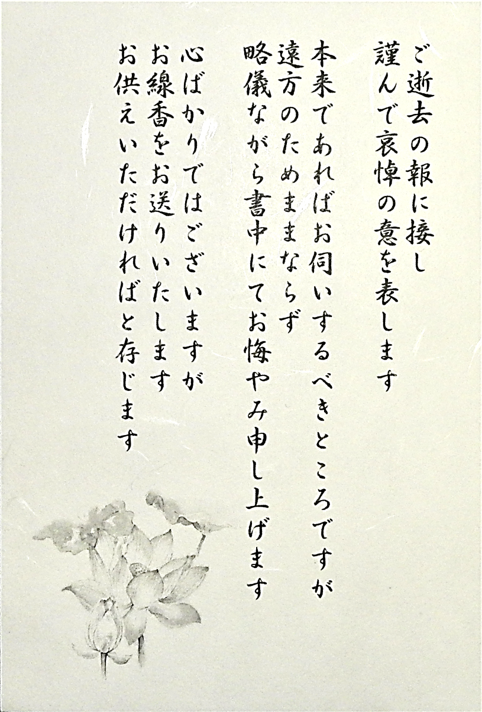 ご逝去の報に接し
謹んで哀悼の意を表します
本来であればお伺いするべきところですが
遠方のためままならず
略儀ながら書中にてお悔やみ申し上げます
心ばかりではございますが
お線香をお送りいたします
お供えいただければと存じます